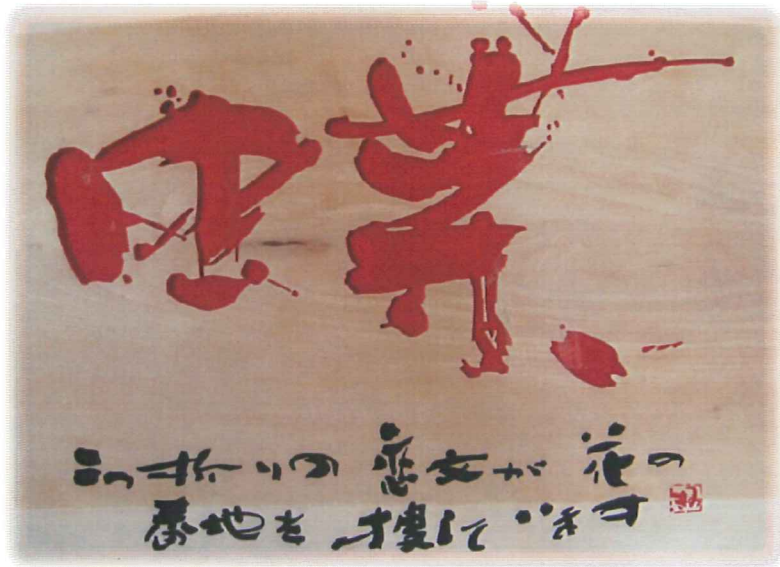 蝶
二つ折りの恋文が花の
番地を捜しています